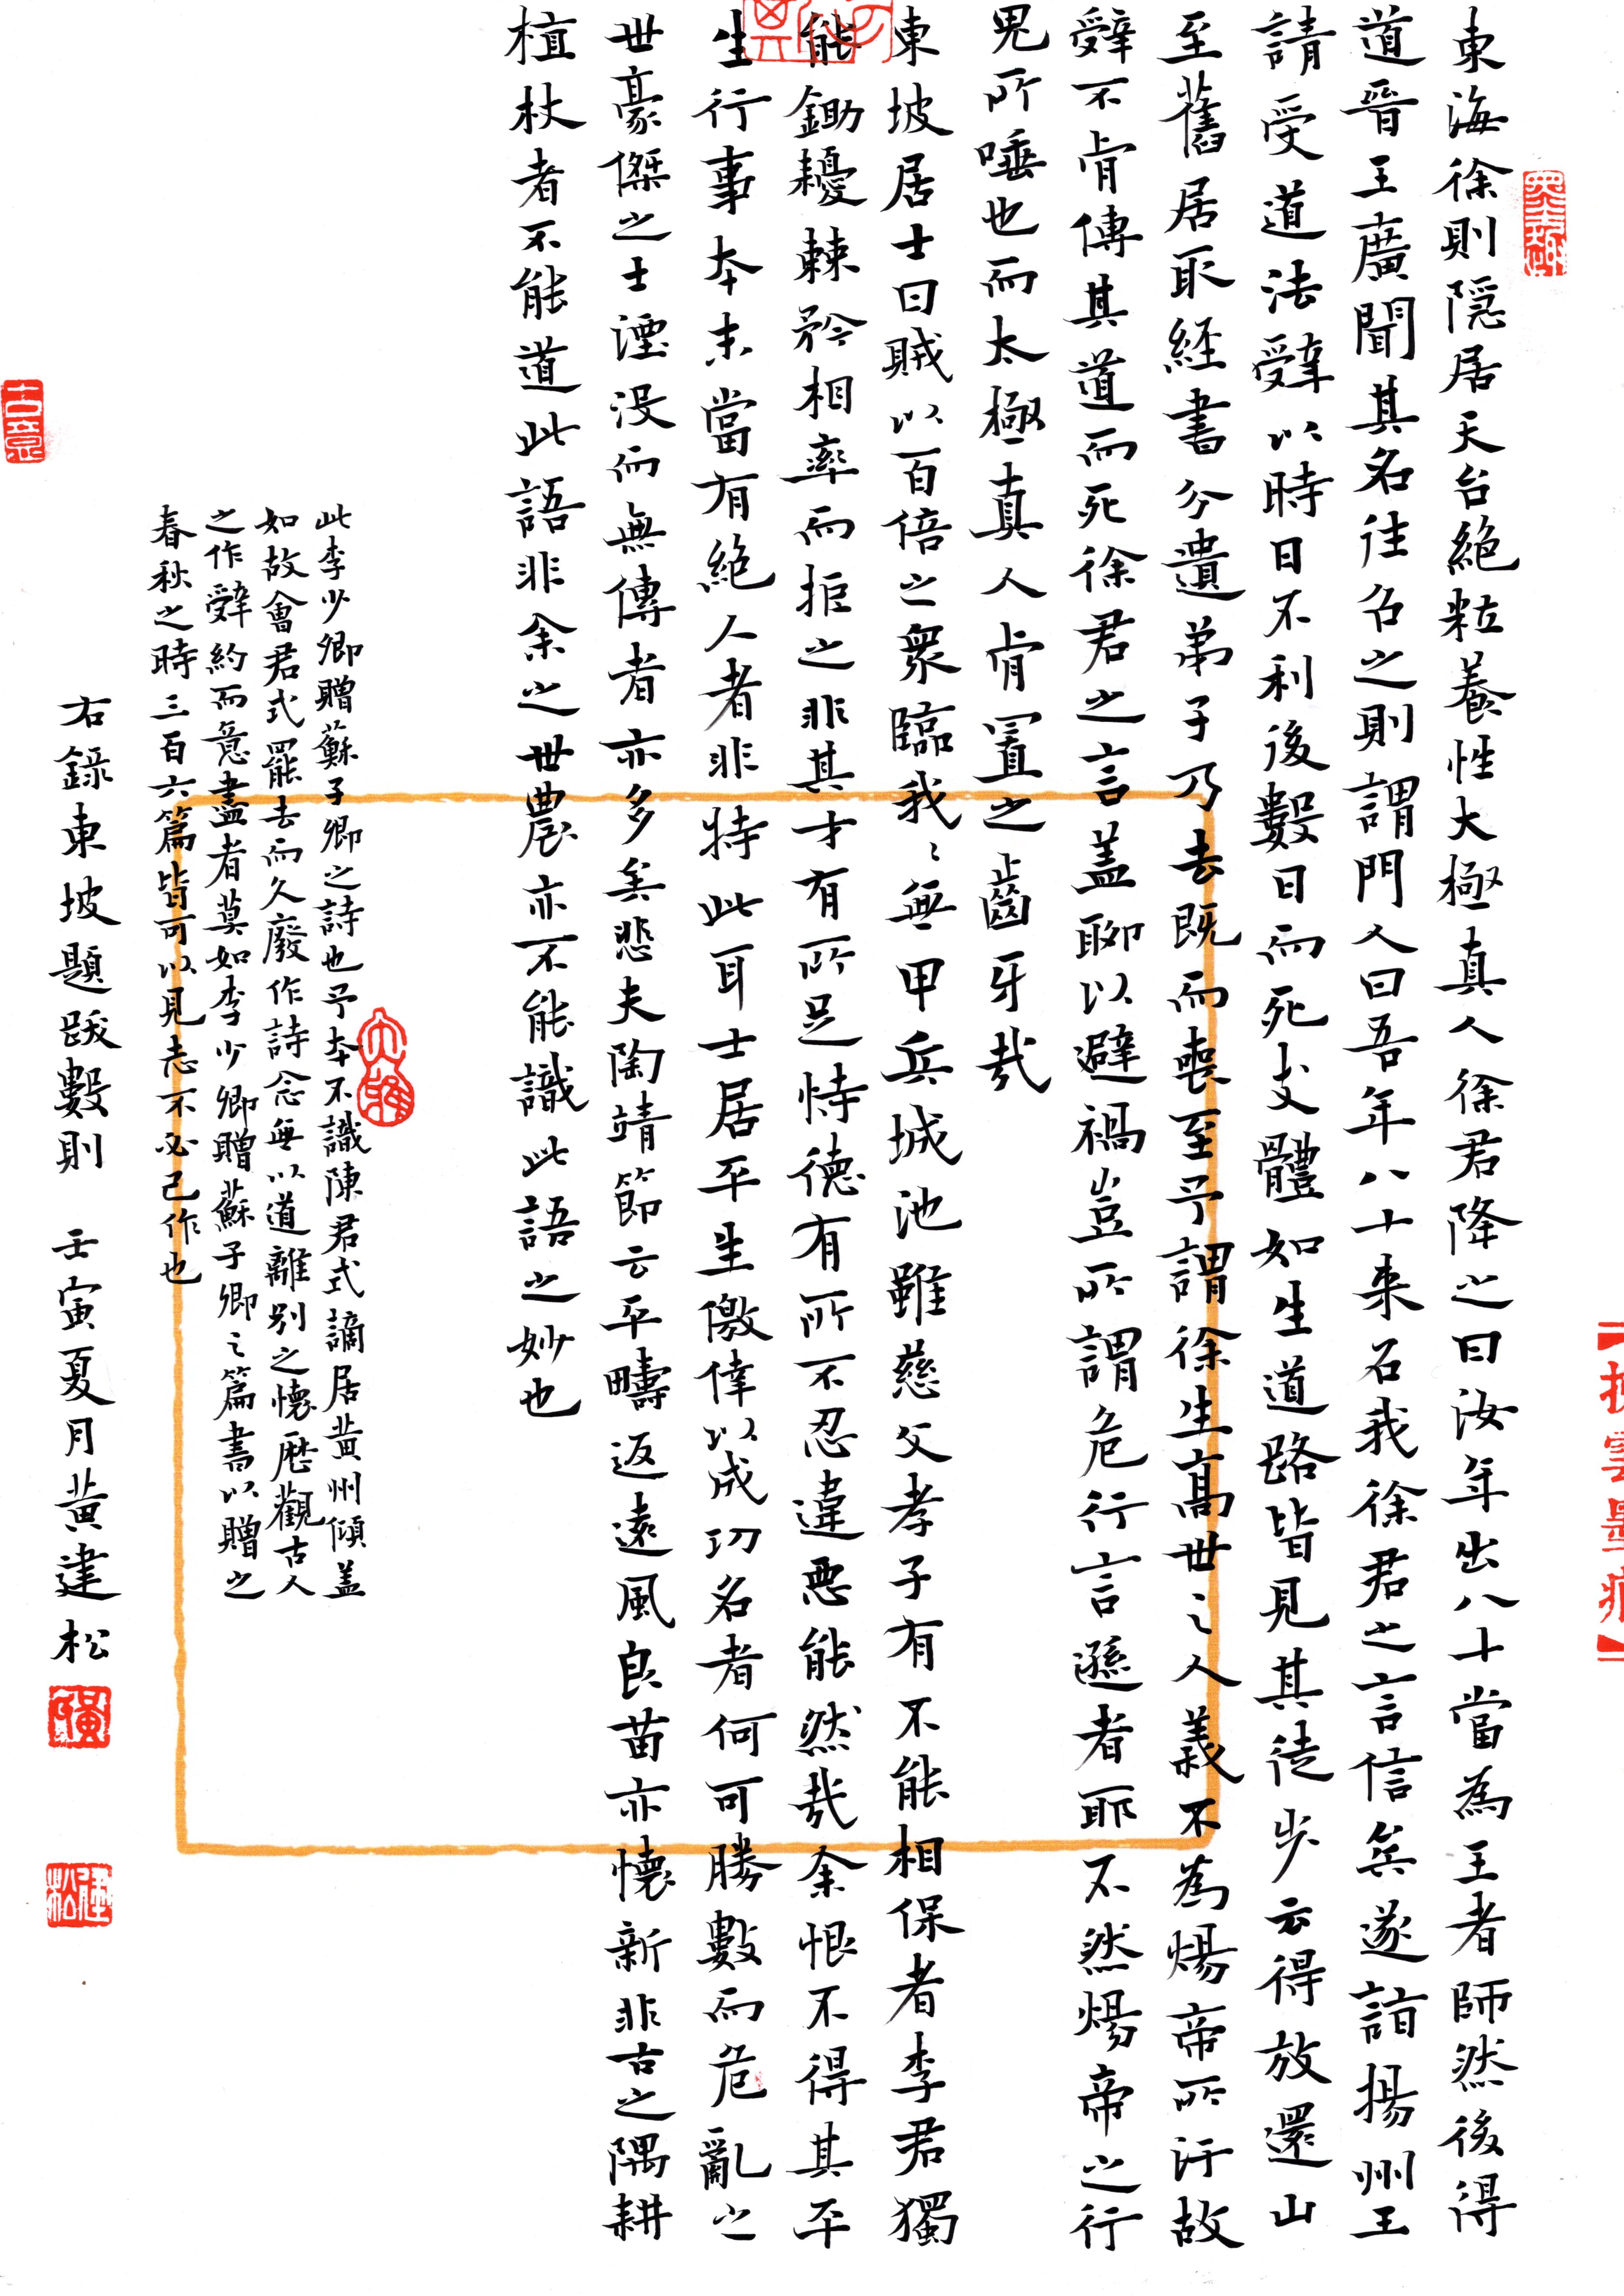 東海徐則隱居天台絕粒養性太極真人徐君降之曰汝年出八十當為王者師然後得
道晉王廣聞其名往召之則謂門人曰吾年八十来召我徐君之言信矣遂詣揚州王
請受道法辭以時日不利後數日而死支體如生道路皆見其徒步云得放還山
至舊居取經書分遺弟子乃去既而喪至予謂徐生高世之人義不為煬帝所汙故
辭不肯傳其道而死徐君之言蓋聊以避禍豈所謂危行言遜者耶不然煬帝之行
鬼所唾也而太極真人肯置之齒牙哉
東坡居士曰賊以百倍之衆臨我〻無甲兵城池雖慈父孝子有不能相保者李君獨
能鋤耰棘矜相率而拒之非其才有所足恃德有所不忍違惡能然哉余恨不得其平
生行事本末當有絕人者非特此耳士居平生徼倖以成功名者何可勝數而危亂之
世豪傑之士湮沒而無傳者亦多矣悲夫陶靖節云平疇返遠風良苗亦懷新非古之隅耕
植杖者不能道此語非余之世農亦不能識此語之妙也
此李少卿贈蘇子卿之詩也予本不識陳君式謫居黃州傾蓋
如故會君式罷去而久廢作詩念無以道離別之懷歷觀古人
之作辭約而意盡者莫如李少卿贈蘇子卿之篇書以贈之
春秋之時三百六篇皆可以見志不必己作也
右錄東坡題跋數則 壬寅夏月黃建松
古意
大雅
黃
建松